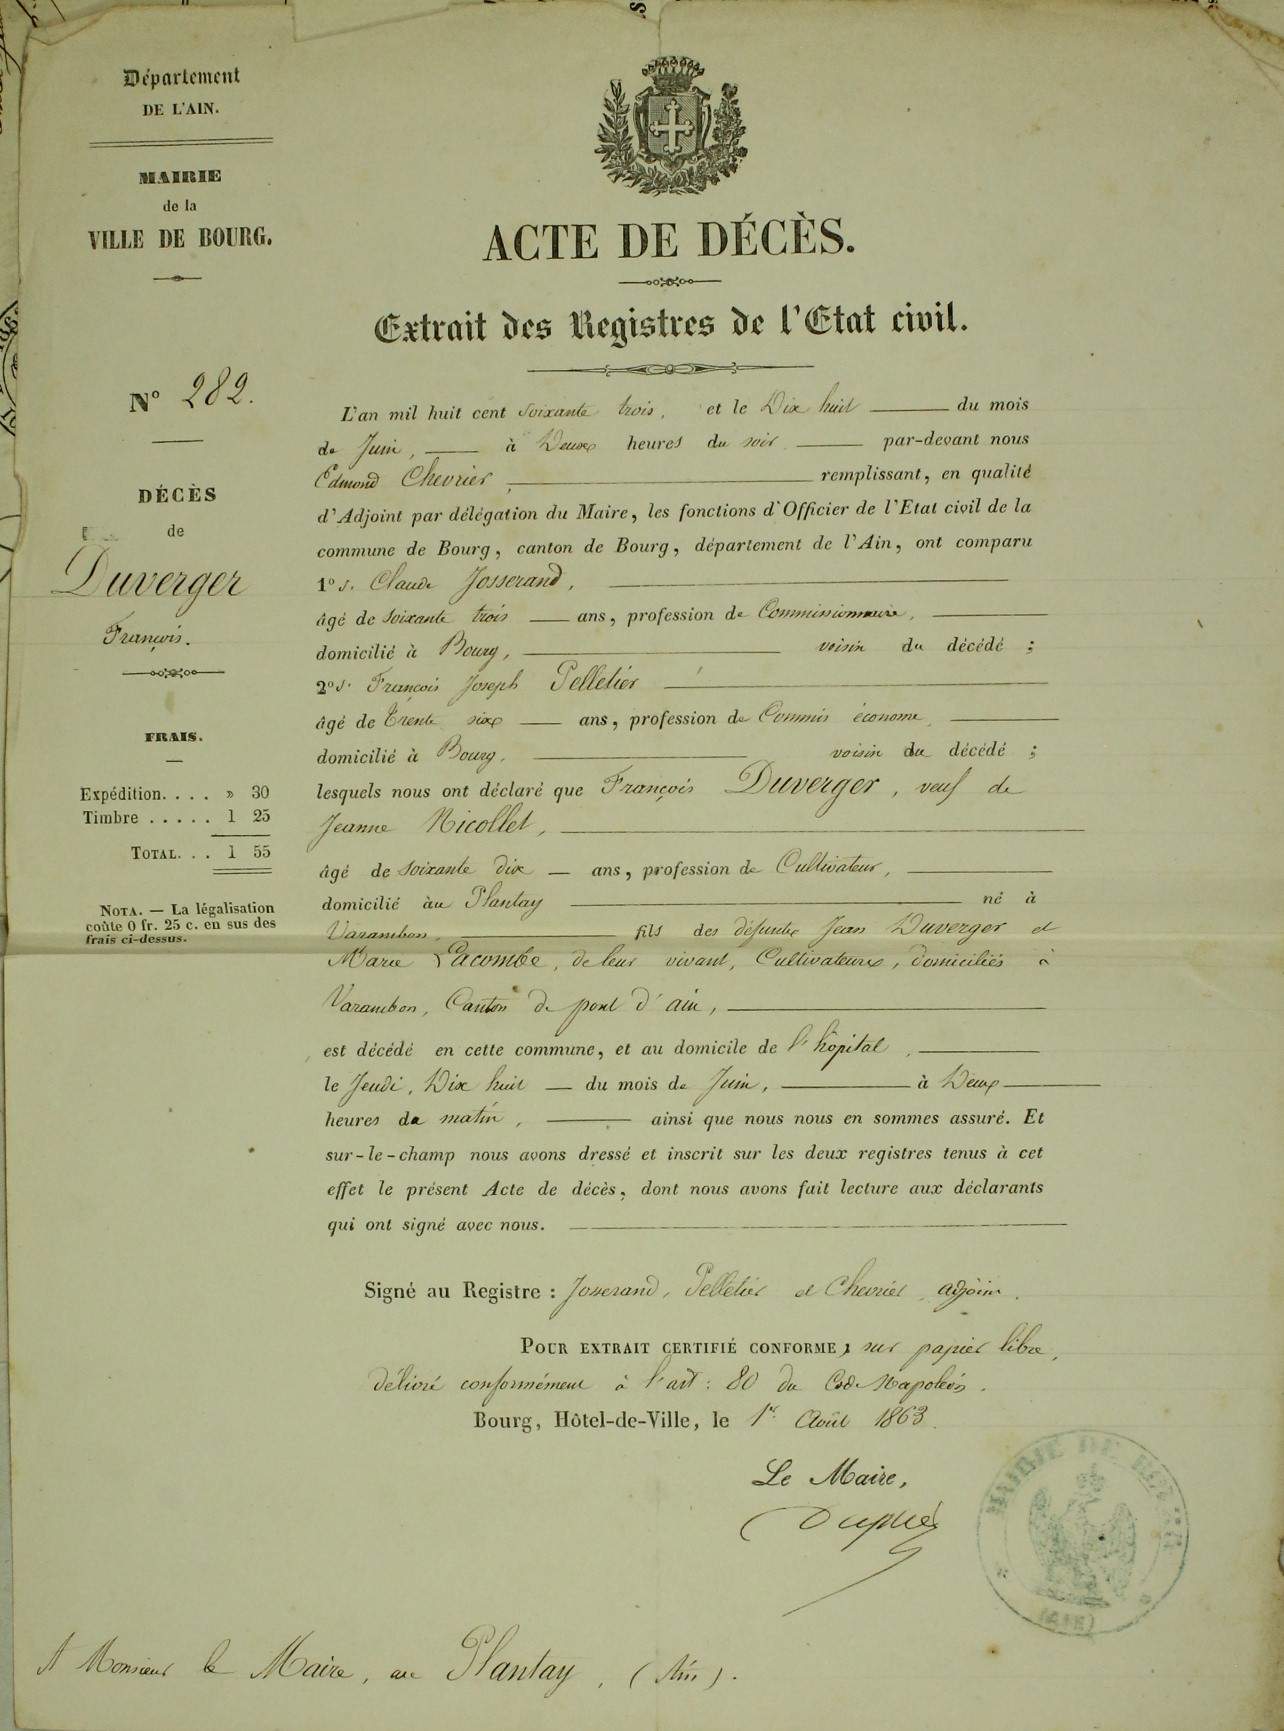 Département
DE L'AIN.
MAIRIE
de la
VILLE DE BOURG.
N° 282.
DÉCÈS
de
Duverger
François.
FRAIS.
Expédition. . . . » 30
Timbre . . . . . 1 25
TOTAL. . . 1 55
NOTA. — La légalisation
coûte 0 fr. 25 c. en sus des
frais ci-dessus.
ACTE DE DÉCÈS.
Extrait des Registres de l'Etat civil.
L'an mil huit cent soixante trois, et le Dix huit du mois
de Juin, à Deux heures du soir par-devant nous
Edmond Chevrier, remplissant, en qualité
d'Adjoint par délégation du Maire, les fonctions d'Officier de l'Etat civil de la
commune de Bourg, canton de Bourg, département de l'Ain, ont comparu
1° s. Claude Josserand,
âgé de soixante trois ans, profession de Commissionnaire,
domicilié à Bourg, voisin du décédé ;
2° s. François Joseph Pelletier
âgé de Trente six ans, profession de Commis économe,
domicilié à Bourg, voisin du décédé ;
lesquels nous ont déclaré que François Duverger, veuf de
Jeanne Nicollet,
âgé de soixante dix ans, profession de Cultivateur,
domicilié au Plantay né à
Varambon, fils des défunts Jean Duverger et
Marie Lacombe, de leur vivant, Cultivateurs, domiciliés à
Varambon, Canton de pont d'ain,
est décédé en cette commune, et au domicile de l'hôpital,
le Jeudi, Dix huit du mois de Juin, à Deux
heures du matin, ainsi que nous nous en sommes assuré. Et
sur-le-champ nous avons dressé et inscrit sur les deux registres tenus à cet
effet le présent Acte de décès, dont nous avons fait lecture aux déclarants
qui ont signé avec nous.
Signé au Registre : Josserand, Pelletier et Chevrier, adjoint.
POUR EXTRAIT CERTIFIÉ CONFORME, sur papier libre,
délivré conformément à l'art : 80 du Code Napoléon.
Bourg, Hôtel-de-Ville, le 1er. Août 1863.
Le Maire,
MAIRIE DE
(AIN)
A Monsieur le Maire, au Plantay, (Ain).